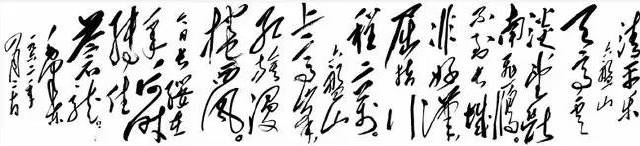 清平乐
六盘山
天高云
淡望断
南飞雁。
不到长城
非好汉
屈指行
程二万。
六盘山
上高峰
红旗漫
卷西风。
今日长缨在
手何时
缚住
苍龙。
毛泽东